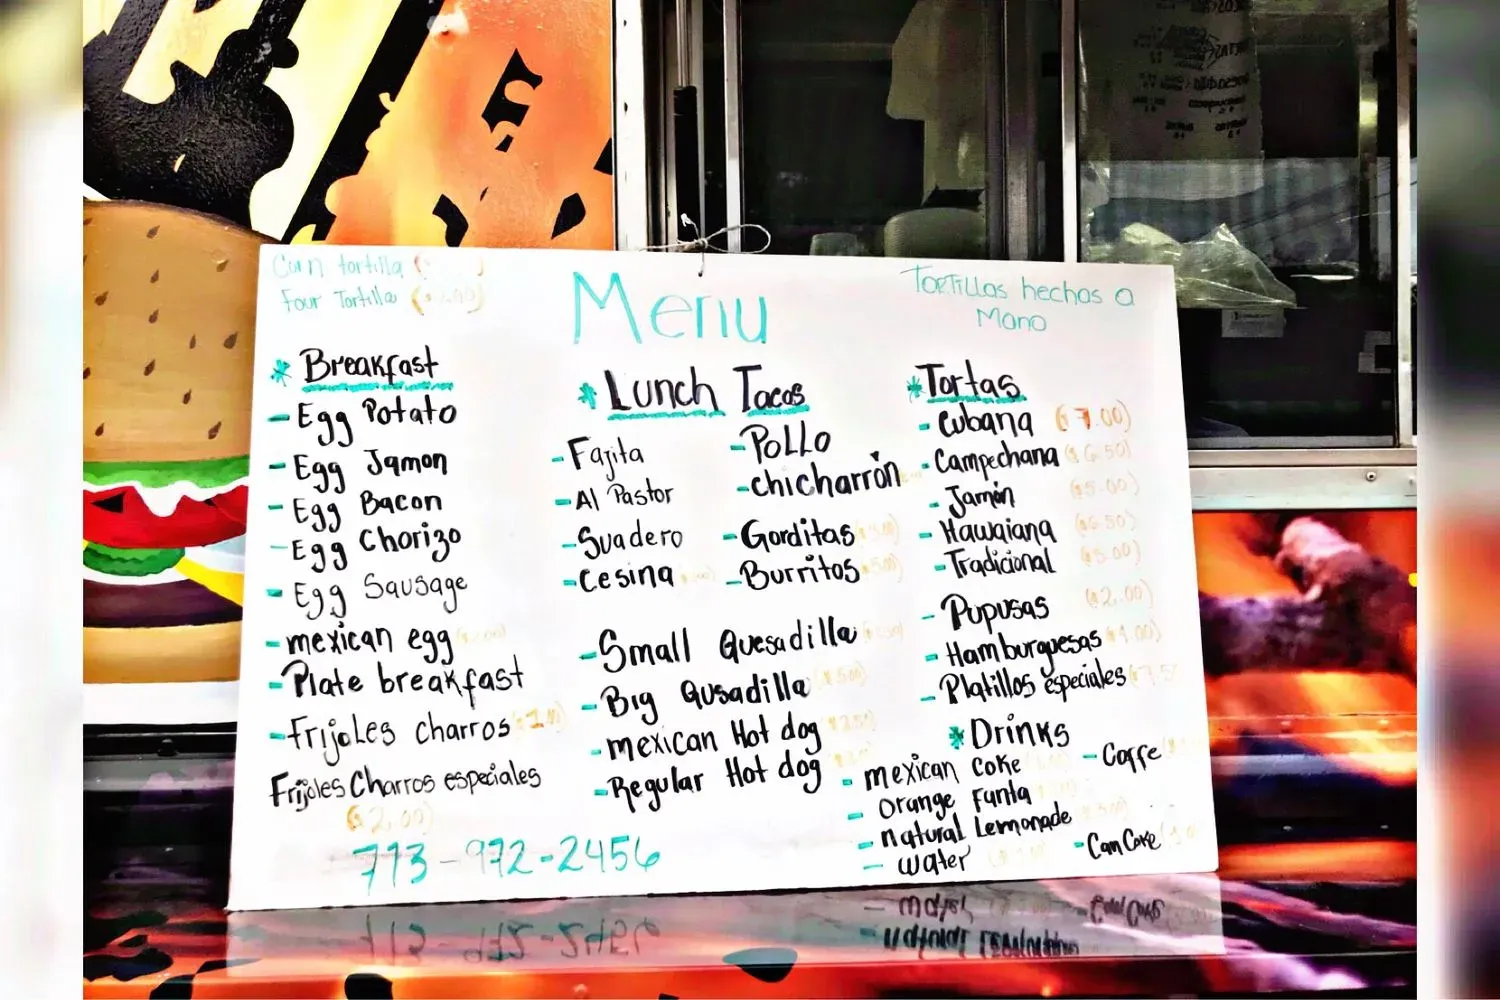 Corn tortilla
Four Tortilla
Menu
Tortillas hechas a
Mano
* Breakfast
- Egg Potato
- Egg Jamon
- Egg Bacon
- Egg Chorizo
- Egg Sausage
- mexican egg
- Plate breakfast
- Frijoles charros
Frijoles Charros especiales
($2.00)
713-972-2456
* Lunch Tacos
- Fajita
- Al Pastor
- Suadero
- Cesina
- Pollo
- chicharrón
- Gorditas
- Burritos
- Small Quesadilla
- Big Qusadilla ($5.00)
- mexican Hot dog
- Regular Hot dog
* Tortas
- Cubana ($7.00)
- Campechana ($6.50)
- Jamón ($5.00)
- Hawaiana ($6.50)
- Tradicional ($5.00)
- Pupusas ($2.00)
- Hamburguesas
- Platillos especiales
* Drinks
- mexican Coke
- Orange Fanta
- natural Lemonade
- water
- Coffe
- Can Coke